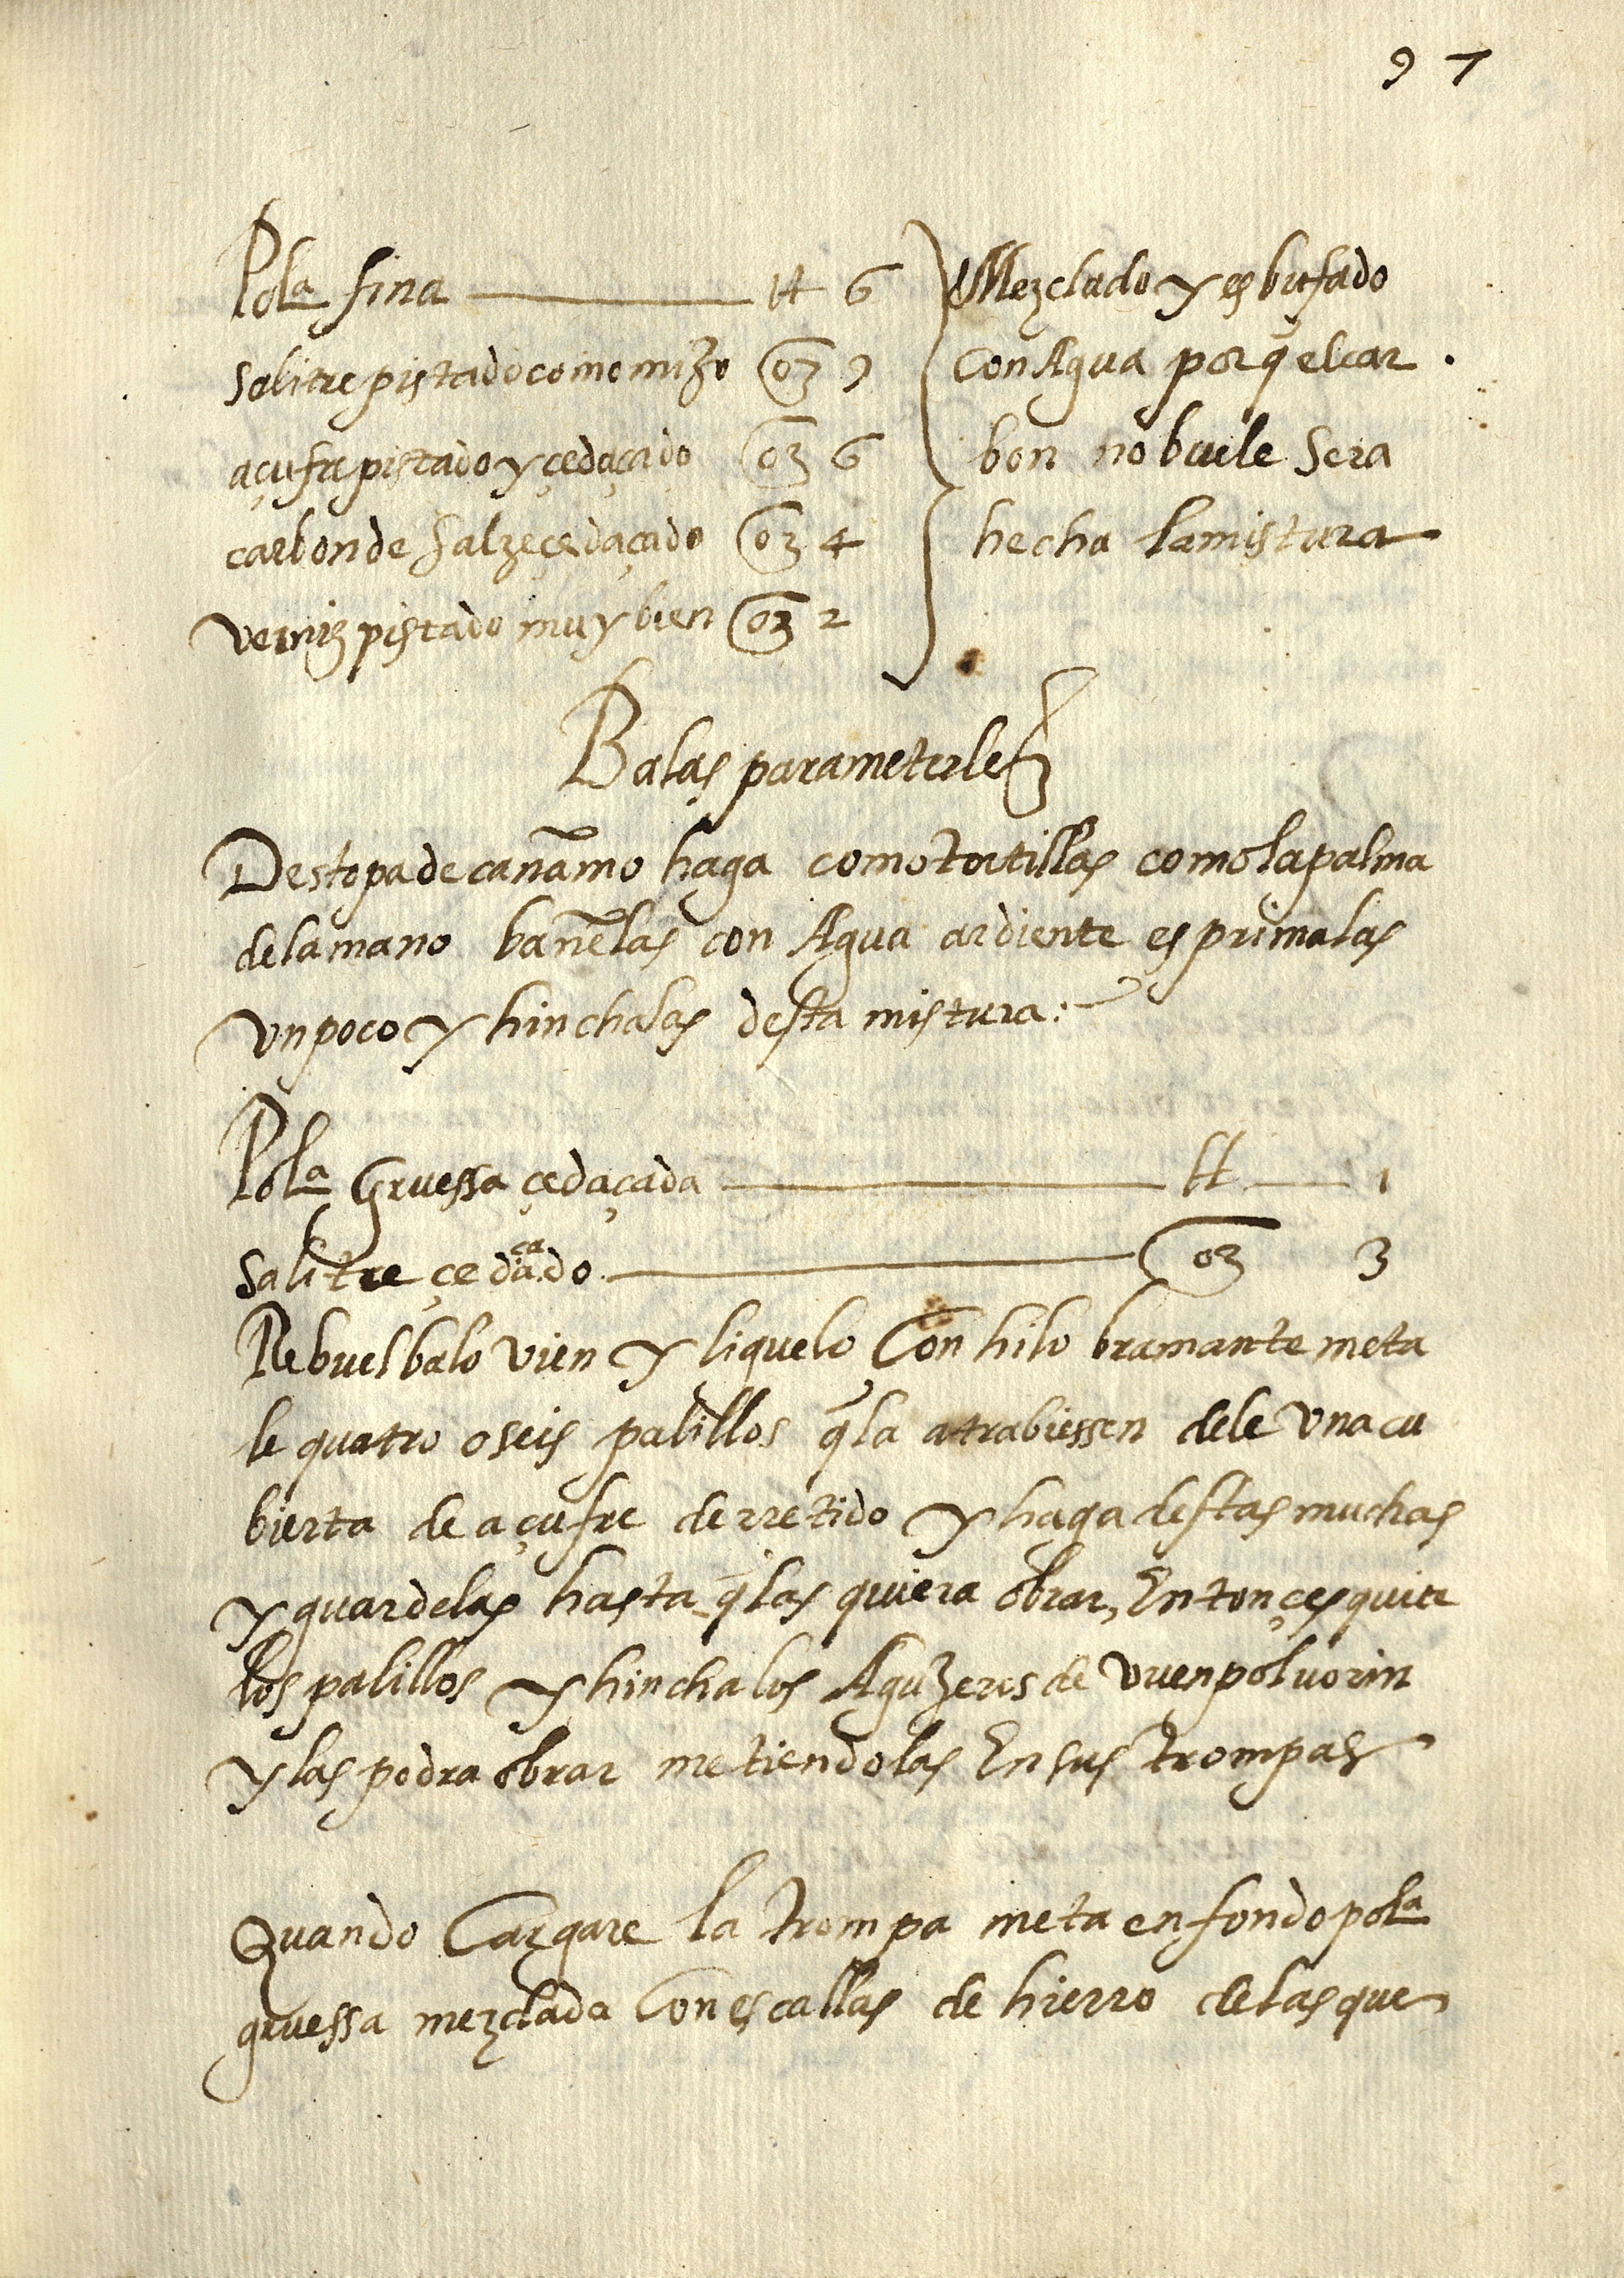 97
Pol.a fina ħ 6
salitre pistado como mijo oz 9
açufre pistado y çedaçado oz 6
carbon de salze çedaçado oz 4
verniz pistado muy bien oz 2
Mezclado y esbufado
con Agua porq̃ el car
bon no buele sera
hecha la mistura
Balas para meterles
Destopa de cañamo haga como tortillas como la palma
de la mano bañelas con Agua ardiente esprimalas
un poco y hinchalas desta mistura:
Pol.a Gruessa çedaçada ħ 1
salitre çedaçado oz 3
Rebuelbalo vien y liguelo Con hilo bramante meta
le quatro o seis palillos q̃ la atrabiessen dele una cu
bierta de açufre derretido y haga destas muchas
y guardelas hasta q̃ las quiera obrar, Entonçes quite
los palillos y hincha los Aguzeros de vuen poluorin
y las podra obrar metiendolas En sus trompas
Quando Cargare la trompa meta en fondo pol.a
gruessa mezclada Con escallas de hierro de las que